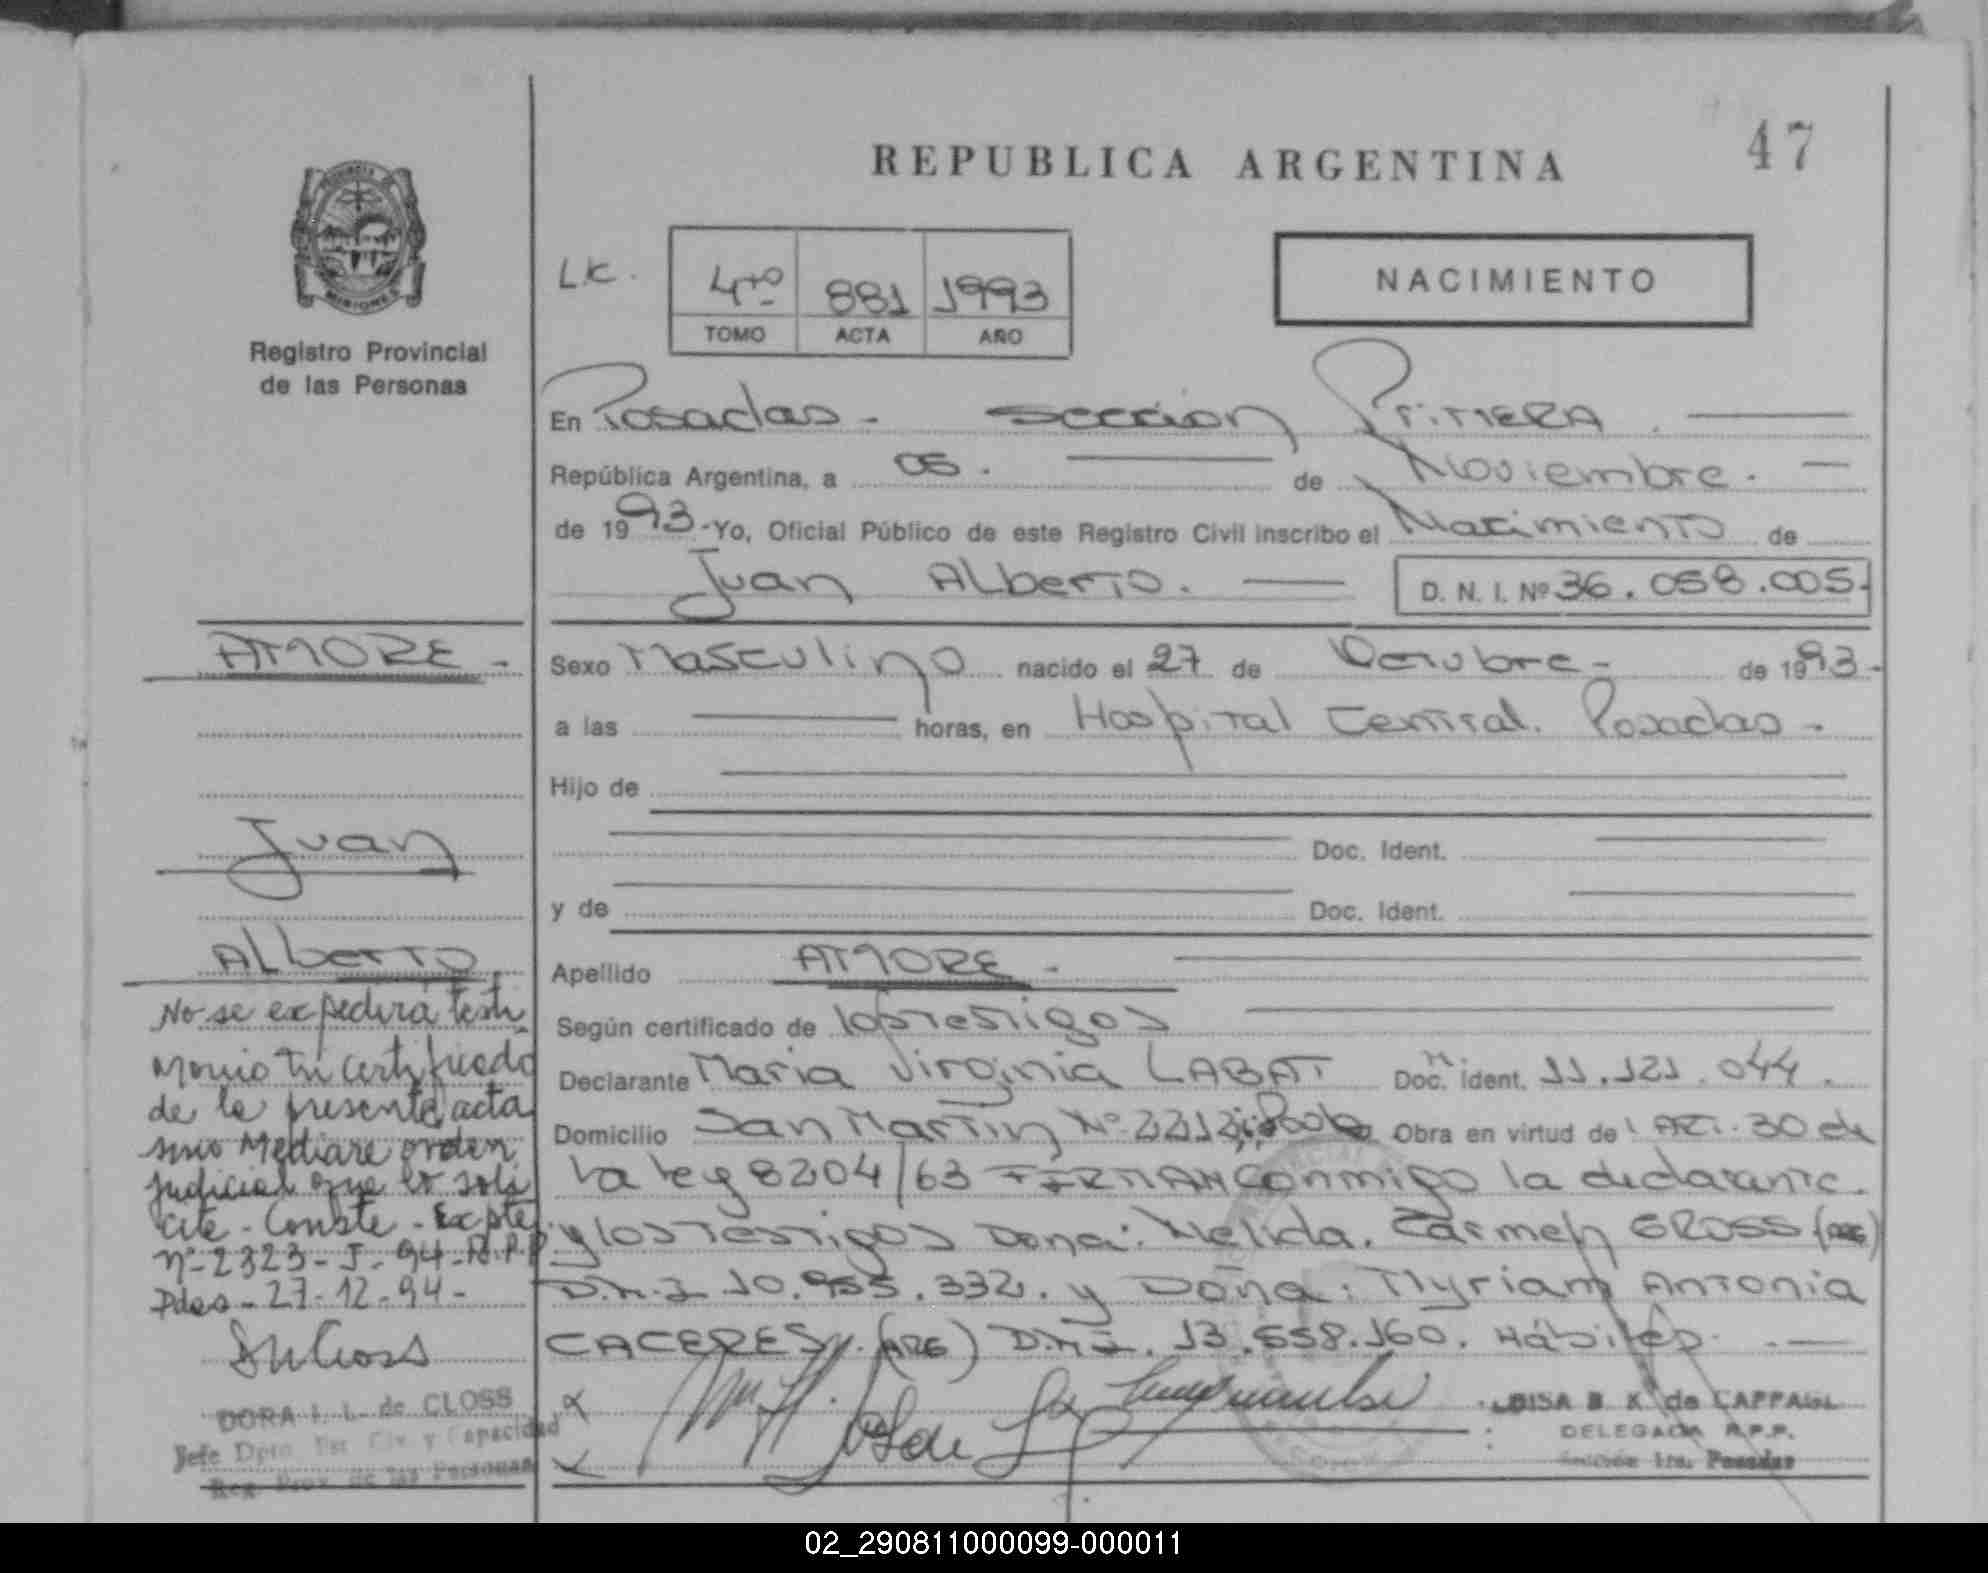 REPUBLICA ARGENTINA
47
PROVINCIA DE
MISIONES
Registro Provincial
de las Personas
L.C.
4to 881 1993
TOMO ACTA AÑO
NACIMIENTO
En Posadas - Sección Primera.
República Argentina, a 05. de Noviembre.
de 1993.-Yo, Oficial Público de este Registro Civil inscribo el Nacimiento de
Juan Alberto. D. N. I. Nº 36.058.005.
Sexo Masculino nacido el 27 de Octubre - de 1993.-
a las horas, en Hospital Central. Posadas -
Hijo de
Doc. Ident.
y de Doc. Ident.
Apellido AMORE -
Según certificado de los testigos
Declarante Maria Virginia LABAT Doc. Ident. 11.121.044.
Domicilio San Martin Nº 2212 Obra en virtud del ART. 30 de
la ley 8204/63 FIRMAN conmigo la declarante.
y los testigos Dona: Nelida. Carmen GROSS (ARG)
D.N.I 10.955.332. y Dona: Myriam Antonia
CACERES. (ARG) D.N.I. 13.558.160. Hábiles.
DELEGADA R.P.P.
Sección 1ra. Posadas
AMORE -
Juan
Alberto
No se expedirá testi
monio ni certificado
de la presente acta
sino Mediare orden
judicial que lo soli
cite - Conste - Expte
nº 2323 - J - 94 - R.P.P
Pdas - 27-12-94 -
DORA I. L. de CLOSS
Jefe Dpto. Est. Civ. y Capacidad
Reg. Prov. de las Personas
02_290811000099-000011